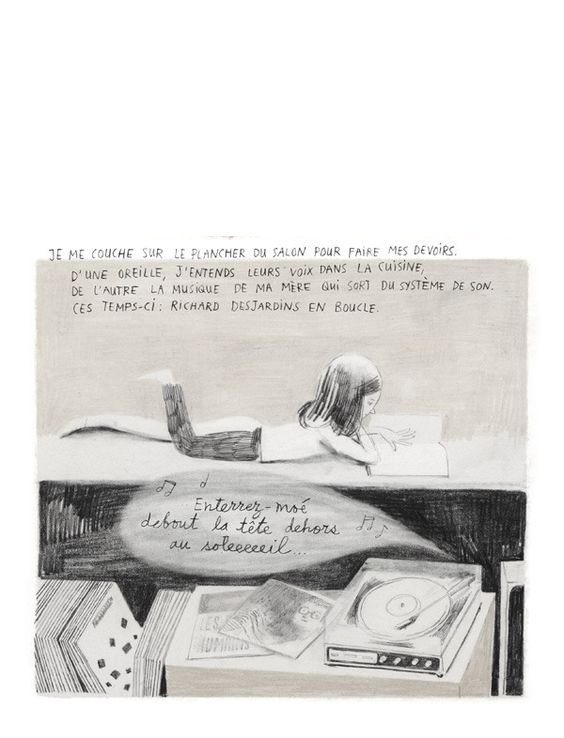 JE ME COUCHE SUR LE PLANCHER DU SALON POUR FAIRE MES DEVOIRS.
D'UNE OREILLE, J'ENTENDS LEURS VOIX DANS LA CUISINE,
DE L'AUTRE LA MUSIQUE DE MA MÈRE QUI SORT DU SYSTÈME DE SON.
CES TEMPS-CI : RICHARD DESJARDINS EN BOUCLE.
Enterrez-moé
debout la tête dehors
au soleeeeeil...
LES
HUMAINS